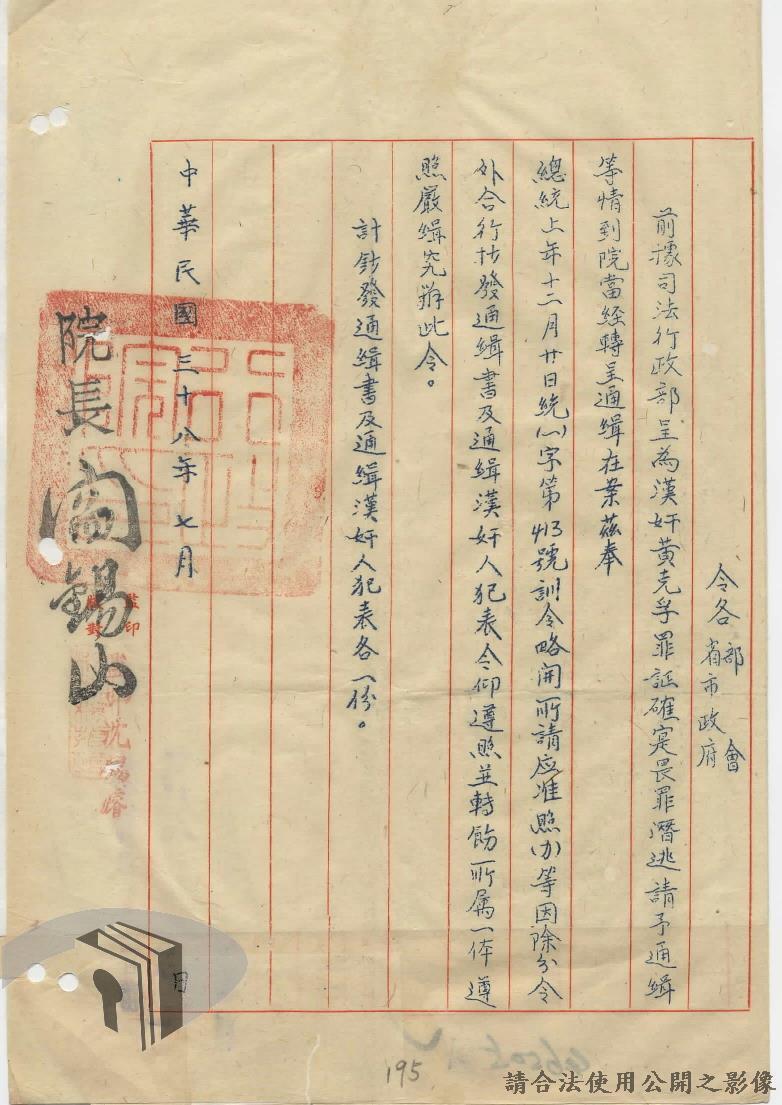 令各部會
省市政府
前據司法行政部呈為漢奸黃克孚罪証確寔畏罪潛逃請予通緝
等情到院當經轉呈通緝在案茲奉
總統上年十二月廿日統(一)字第413號訓令略開所請应准照(办)等因除分令
外合行抄發通緝書及通緝漢奸人犯表令仰遵照並轉飭所属一体遵
照嚴緝究辦此令。
計鈔發通緝書及通緝漢奸人犯表各一份。
中華民國三十八年七月 日
院長閻錫山
監印
校對
195
請合法使用公開之影像